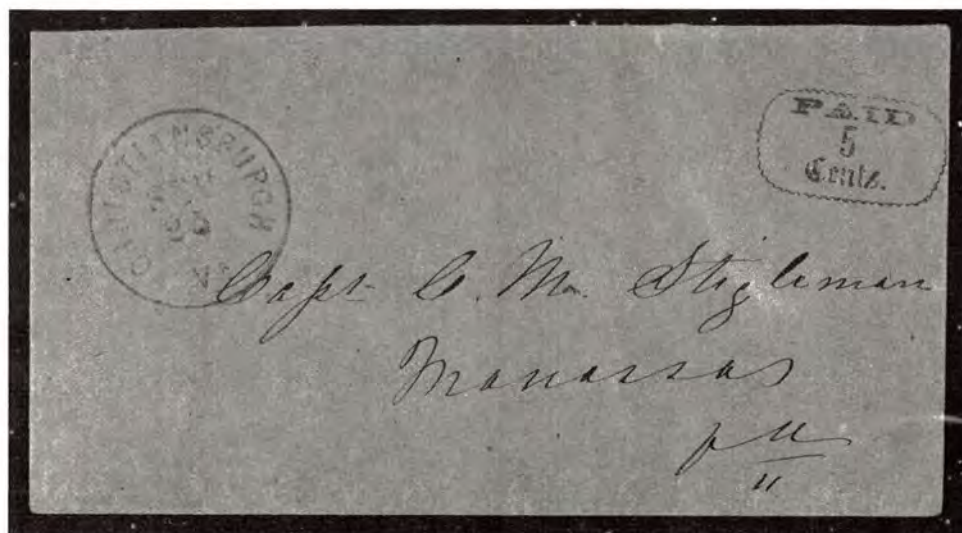 CHRISTIANSBURGH
Va
PAID
5
Cents.
Capt C. M. Stigleman
Manassas